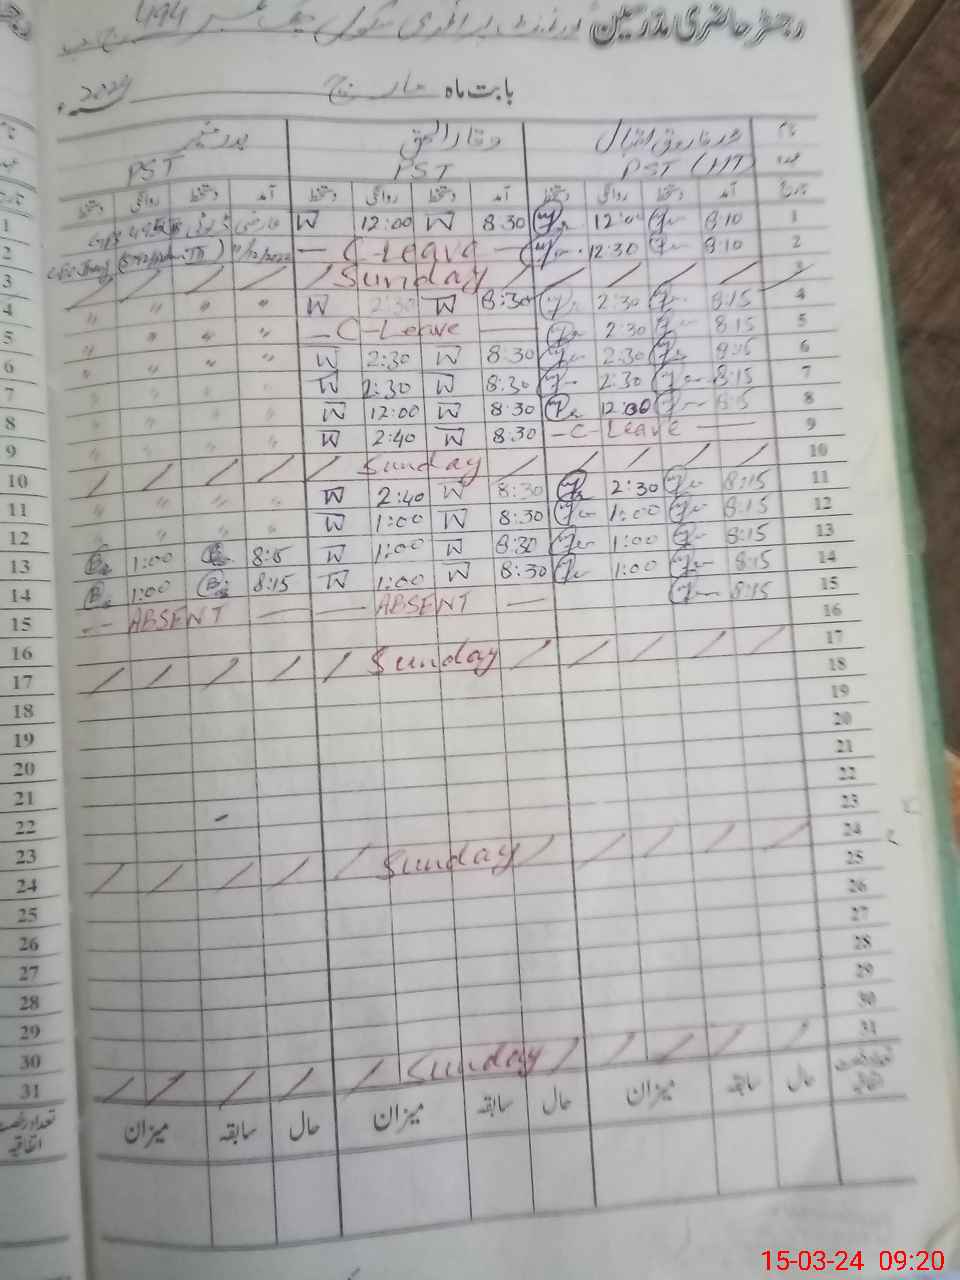 رجسٹر حاضری مدرسین گورنمنٹ پرائمری سکول چک نمبر 494
بابت ماہ مارچ 2024ء
نام محمد فاروق اقبال وقار الحق
عہدہ PST (HT) PST PST
تاریخ آمد دستخط روانگی دستخط آمد دستخط روانگی دستخط آمد دستخط روانگی دستخط
1 8:10 12:00 8:30 W 12:00 W 1
2 8:10 12:30 — C-Leave — 11/12/2022 2
3 Sunday 3
4 8:15 2:30 8:30 W 2:30 W " " " 4
5 8:15 2:30 — C-Leave — " " " 5
6 8:15 2:30 8:30 W 2:30 W " " " 6
7 8:15 2:30 8:30 W 2:30 W 7
8 8:15 12:00 8:30 W 12:00 W 8
9 — C-Leave — 8:30 W 2:40 W 9
10 Sunday 10
11 8:15 2:30 8:30 W 2:40 W " " " 11
12 8:15 1:00 8:30 W 1:00 W " " " 12
13 8:15 1:00 8:30 W 1:00 W 8:15 1:00 13
14 8:15 1:00 8:30 W 1:00 W 8:15 1:00 14
15 8:15 — ABSENT — — ABSENT — 15
16 16
17 Sunday 17
18 18
19 19
20 20
21 21
22 22
23 23
24 Sunday 24
25 25
26 26
27 27
28 28
29 29
30 30
31 Sunday 31
تعداد رخصت اتفاقیہ حال سابقہ میزان حال سابقہ میزان حال سابقہ میزان تعداد رخصت اتفاقیہ
15-03-24 09:20